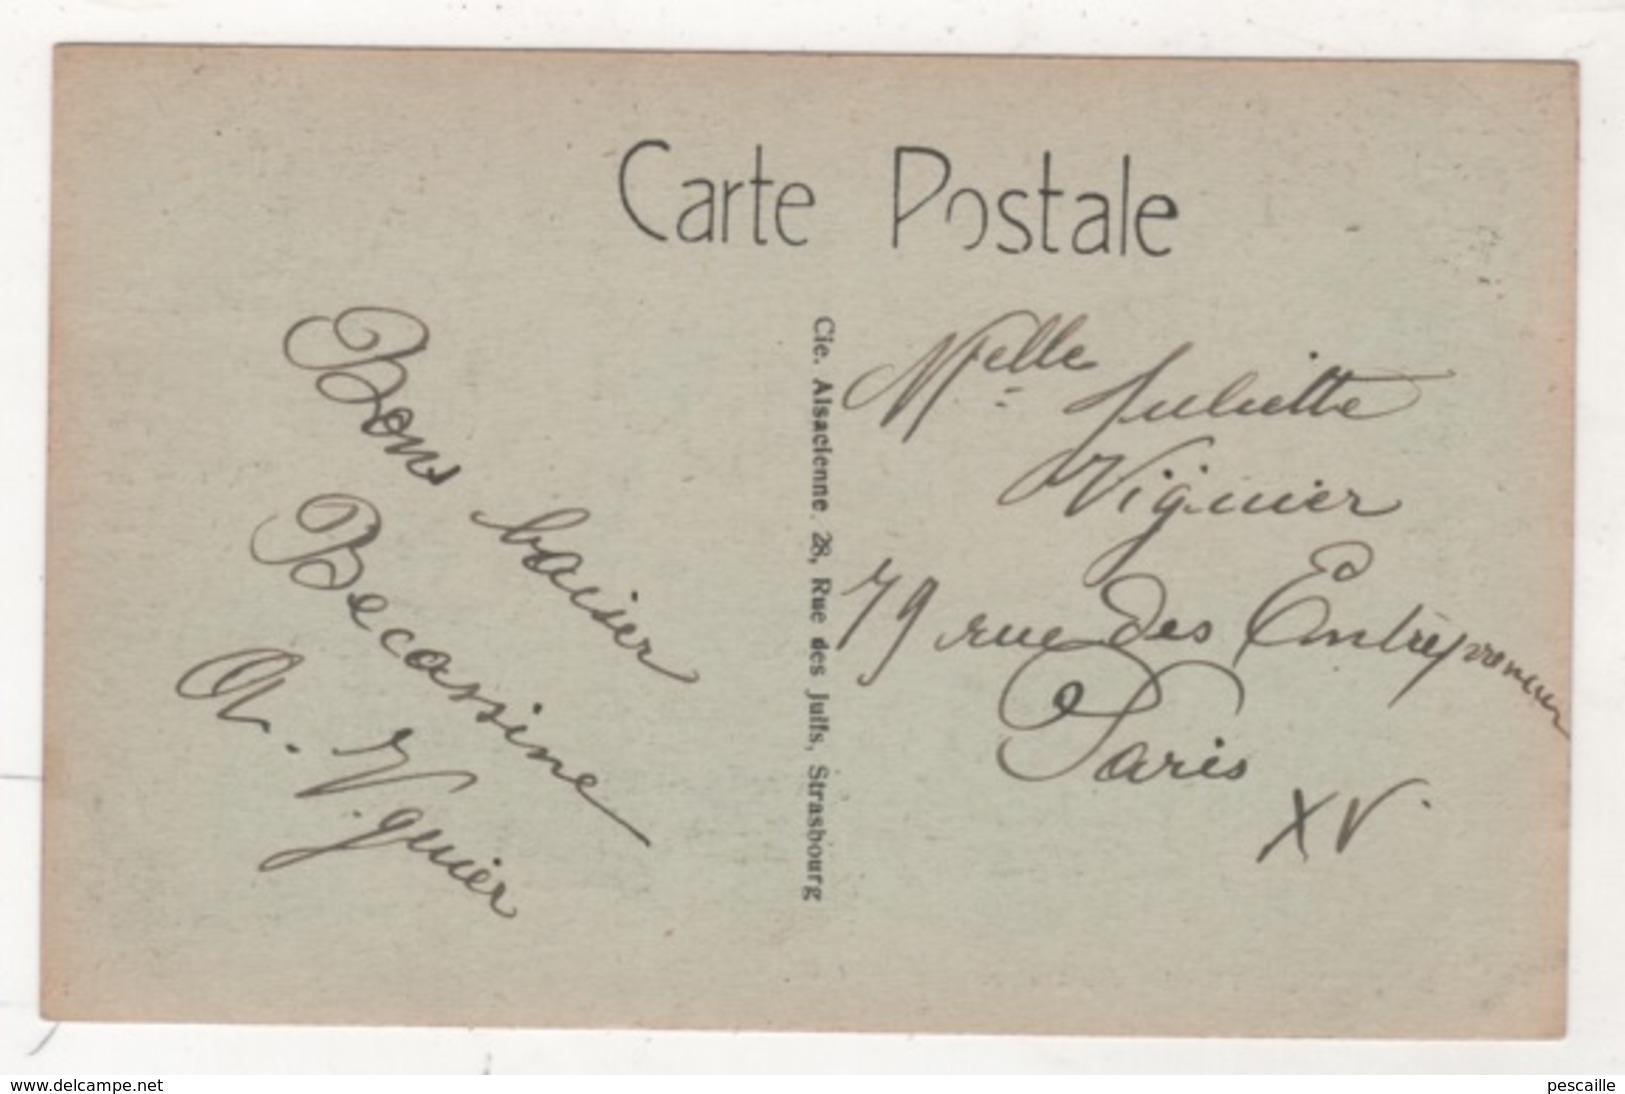 Carte Postale
Bons baiser
Becassine
A. Viguier
Cie. Alsacienne, 28, Rue des Juifs, Strasbourg
Melle Juliette
Viguier
79 rue des Entrepreneur
Paris
XV.
www.delcampe.net
pescaille